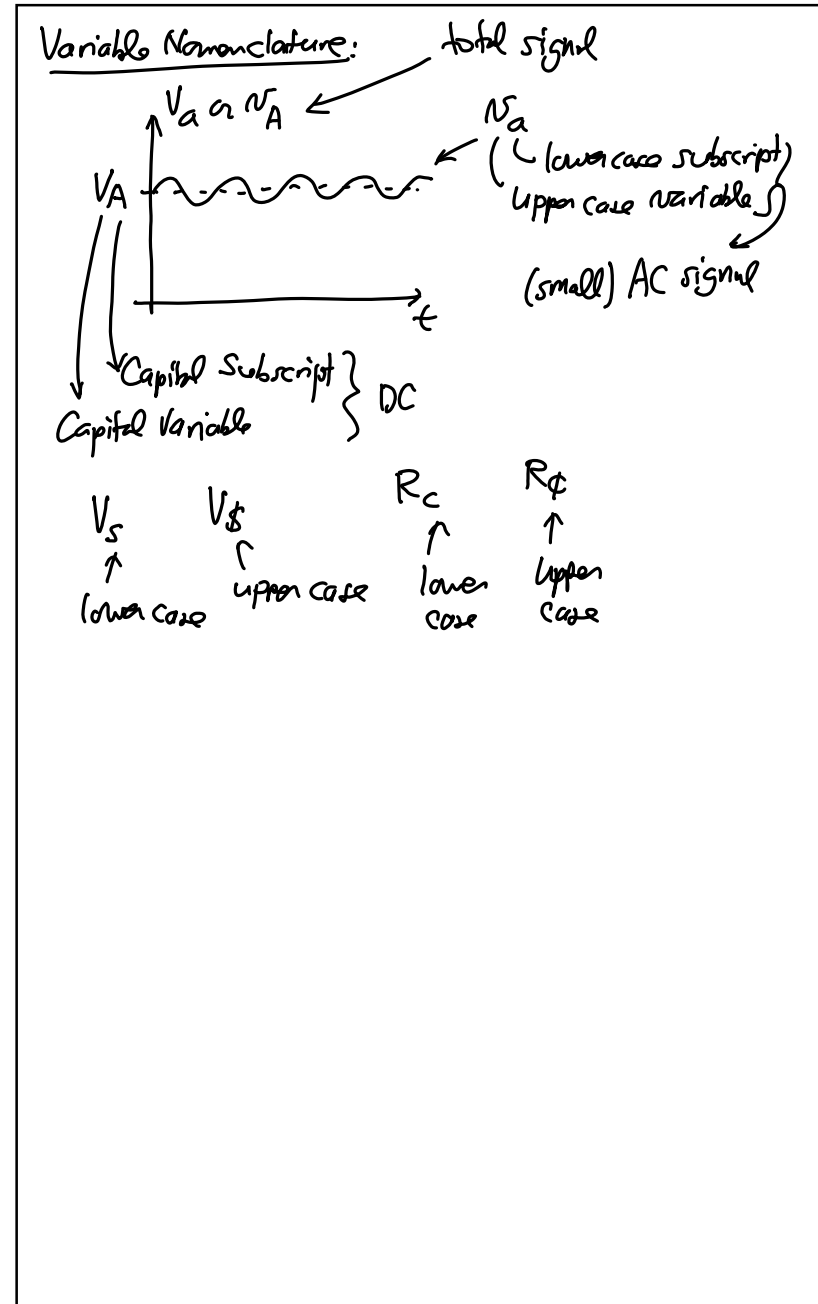 Variable Nomenclature:
total signal
Va or vA
va
VA
lower case subscript
upper case variable
(small) AC signal
t
Capital Subscript
DC
Capital Variable
Vs V$ Rc R₵
lower case
upper case
lower
case
Upper
case